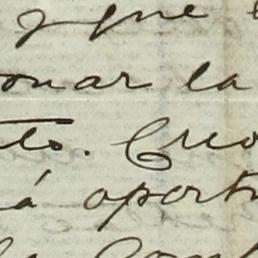 y que
onar la
to. Creo
á oport